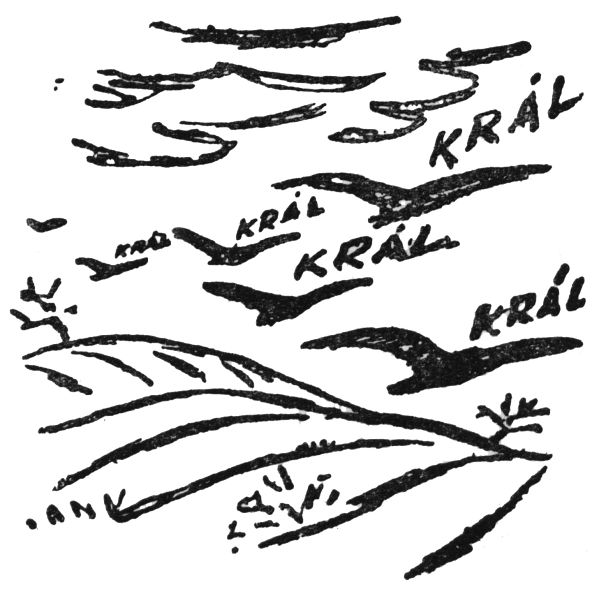 KRÁL
KRÁL
KRÁL
KRÁL
KRÁL